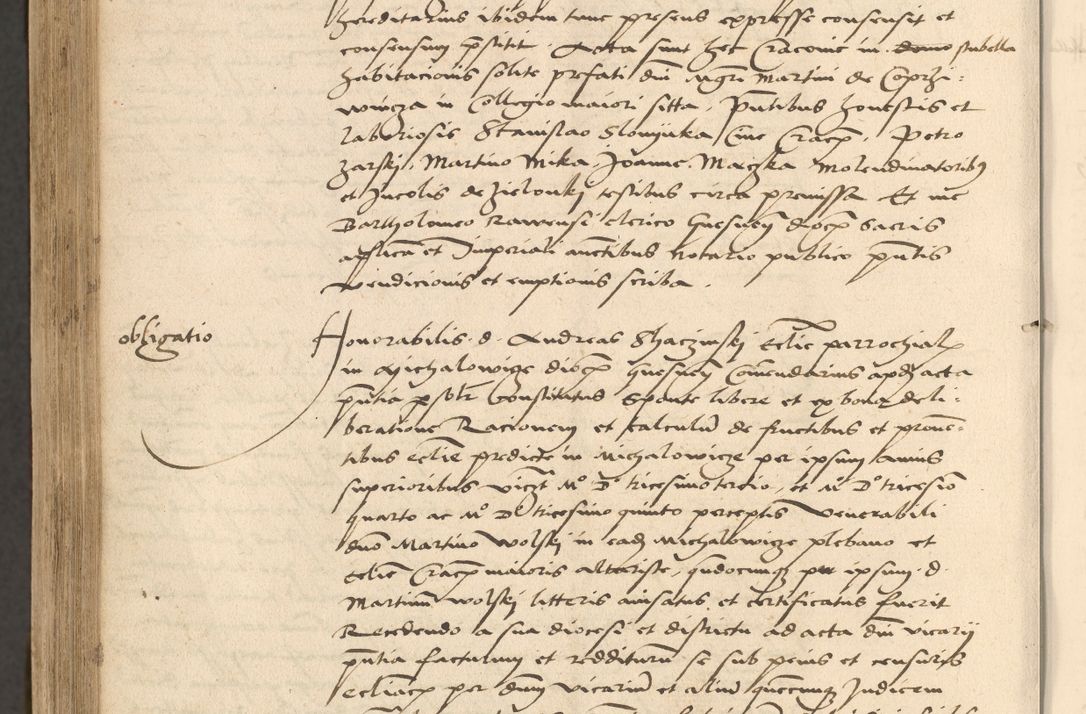 hereditarius ibidem tunc presens expresse consensit et
consensum prestitit Acta sunt hec Cracovie in domo stubella
habitacionis solite prefati dni Mgri Martini de Coprzi-
wnicza in Collegio maiori sitta. Pntibus honestis et
laboriosis Stanislao Slomynka Cive Crac, Petro
Zarski, Martino Mika, Joanne Maczka Molendinatoribus
et Incolis de Zielonki testibus circa premissa Et me
Bartholomeo Rawensi clerico Gnesnen dioc Sacris
aplica et Imperiali auctibus notario publico pntis
vendicionis et emptionis scriba.
obligatio
Honorabilis d. Andreas Skaczinskj Ecclie parrochial
in Michalowicze dioc gnesnen Comendarius apd acta
pntia psolr Constitutus Sponte libere et ex bona deli-
beratione Racionem et calculum de fructibus et proven-
tibus ecclie predicte in Michalowicze per ipsum annis
superioribus viczt Mo Do tricesimotercio, et Mo Do tricesio
quarto ac Mo D tricesimo quinto perceptis Venerabili
dno Martino Wolskj in eadem Michalowicze plebano et
Ecclie Crac maioris altariste, quodocunq per ipsum d.
Martinum Wolskj litteris avisatus et certificatus fuerit
Recedendo a sua diocesi et districtu ad acta dni vicarij
pntia facturum et redditurum se sub penis et censuris
eccliacis per dnum vicarium et alium quemcunq Judicem